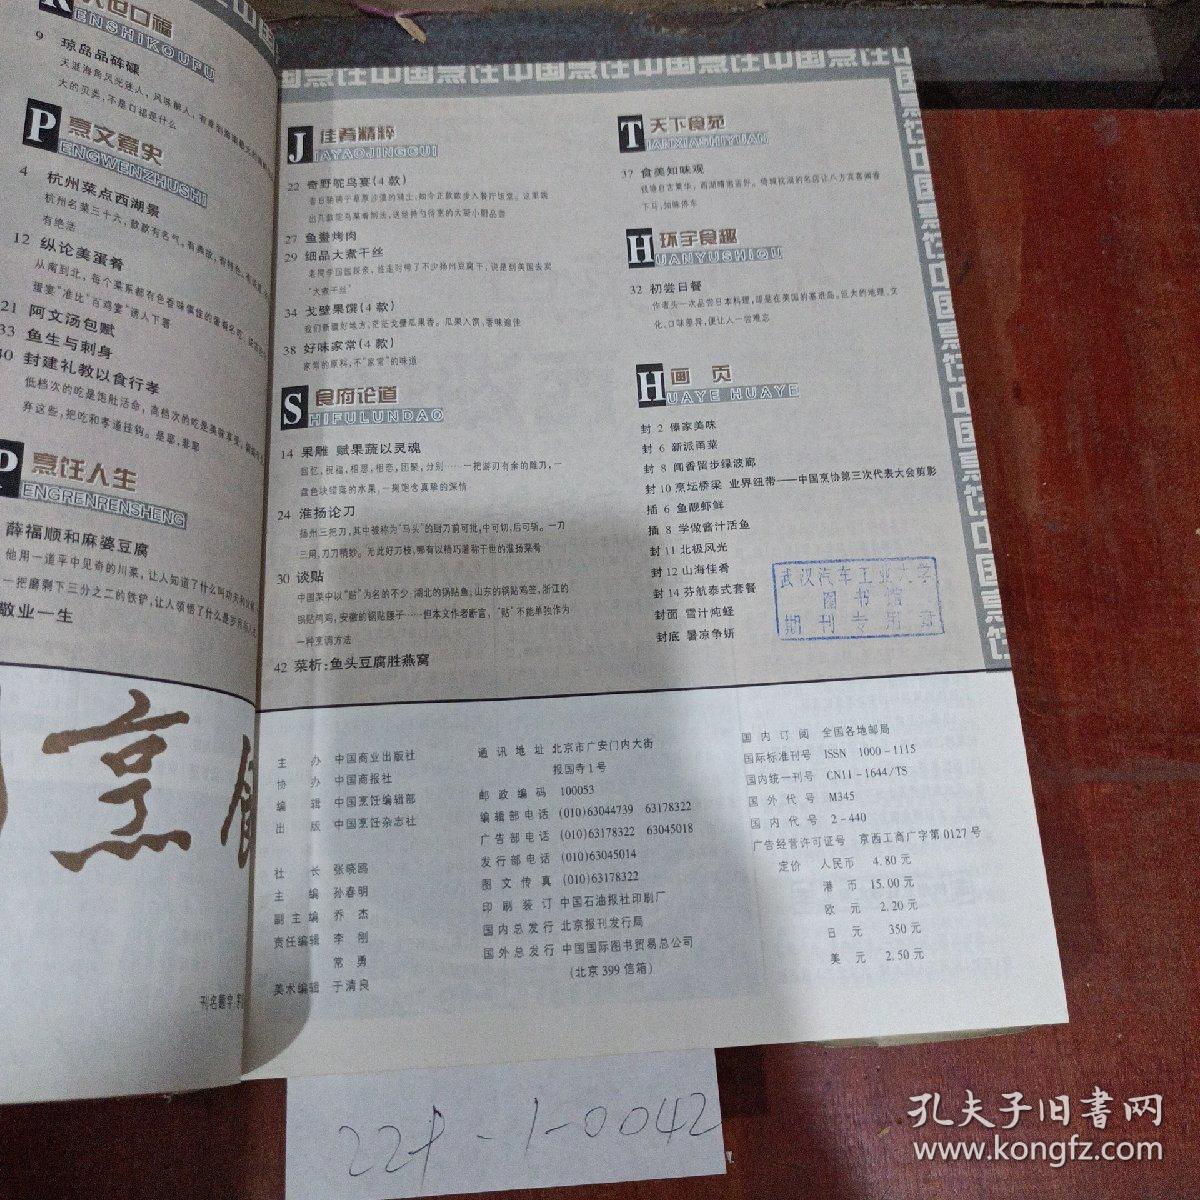 人世口福
RENSHIKOUFU
9 琼岛品砗磲
大的贝类,不是口福是什么
P 烹文煮史
PENGWENZHUSHI
4 杭州菜点西湖景
有绝活
12 纵论美蛋肴
21 阿文汤包赋
33 鱼生与刺身
40 封建礼教以食行孝
弃这些,把吃和孝道挂钩。是耶,非耶
P 烹饪人生
PENGRENRENSHENG
薛福顺和麻婆豆腐
敬业一生
烹
中国烹饪中国烹饪中国烹饪中国烹饪
J 佳肴精粹
JIAYAOJINGCUI
22 奇野鸵鸟宴(4 款)
27 鱼鲞烤肉
29 细品大煮干丝
“大煮干丝”
34 戈壁果馔(4 款)
我们新疆好地方,茫茫戈壁瓜果香。瓜果入馔,香味谁佳
38 好味家常(4 款)
家常的原料,不“家常”的味道
S 食府论道
SHIFULUNDAO
14 果雕 赋果蔬以灵魂
回忆,祝福,相思,相恋,团聚,分别……一把游刃有余的雕刀,一
盘色块错落的水果,一腕饱含真挚的深情
24 淮扬论刀
扬州三把刀,其中被称为“马头”的厨刀前可批,中可切,后可斩。一刀
三用,刀刀精妙。无此好刀技,哪有以精巧著称于世的淮扬菜肴
30 谈贴
中国菜中以“贴”为名的不少:湖北的锅贴鱼,山东的锅贴鸡签,浙江的
锅贴鸭鸡,安徽的锅贴腰子……但本文作者断言,“贴”不能单独作为
一种烹调方法
42 菜析:鱼头豆腐胜燕窝
T 天下食苑
TIANXIASHIYUAN
37 食美知味观
下马,知味停车
H 环宇食趣
HUANYUSHIQU
32 初尝日餐
作者头一次品尝日本料理,却是在美国的塞班岛。巨大的地理、文
化、口味差异,便让人一尝难忘
H 画 页
HUAYE HUAYE
封 2 傣家美味
封 6 新派甬菜
封 8 闻香留步绿波廊
封 10 烹坛桥梁 业界纽带——中国烹协第三次代表大会剪影
插 6 鱼靓虾鲜
插 8 学做酱汁活鱼
封 11 北极风光
封 12 山海佳肴
封 14 芬航泰式套餐
封面 雪汁炖蛏
封底 暑凉争妍
武汉汽车工业大学
图书馆
期刊专用章
主 办 中国商业出版社
协 办 中国商报社
编 辑 中国烹饪编辑部
出 版 中国烹饪杂志社
社 长 张晓鸥
主 编 孙春明
副主编 乔 杰
责任编辑 李 刚
常 勇
美术编辑 于清良
通讯地址 北京市广安门内大街
报国寺1号
邮政编码 100053
编辑部电话 (010)63044739 63178322
广告部电话 (010)63178322 63045018
发行部电话 (010)63045014
图文传真 (010)63178322
印刷装订 中国石油报社印刷厂
国内总发行 北京报刊发行局
国外总发行 中国国际图书贸易总公司
(北京399信箱)
国内订阅 全国各地邮局
国际标准刊号 ISSN 1000-1115
国内统一刊号 CN11-1644/TS
国外代号 M345
国内代号 2-440
广告经营许可证号 京西工商广字第0127号
定价 人民币 4.80元
港 币 15.00元
欧 元 2.20元
日 元 350元
美 元 2.50元
刊名题字
孔夫子旧书网
www.kongfz.com